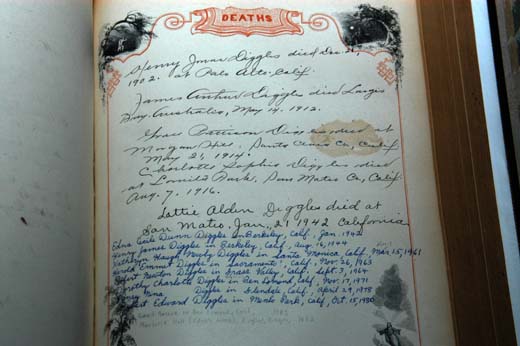 DEATHS
Henry Jonas Diggles died Dec. 26,
1902. at Palo Alto, Calif.
James Arthur Diggles died Largs
Bay, Australia, May 14. 1912.
Grace Pattison Diggles died at
Morgan Hill, Santa Clara Co, Calif.
May 21, 1914.
Charlotte Sophia Diggles died
at Lomita Park, San Mateo Co, Calif.
Aug. 7, 1916.
Lettie Alden Diggles died at
San Mateo, Jan, 21 1942 California
Edna Dunn Diggles in Berkeley, Calif, Jan. 1942
Henry James Diggles in Berkeley, Calif, Aug 16, 1944
Kathryn Haugh Diggles in Santa Monica, Calif, Mar. 25, 1961
Emmet Diggles in Sacramento, Calif, Nov. 26, 1963
Robert Newton Diggles in Grass Valley, Calif. Sept. 3, 1964
Dorothy Charlotte Diggles in Ben Lomond, Calif, Nov. 17, 1971
Nina Diggles in Glendale, Calif. April 29, 1978
Robert Edward Diggles in Menlo Park, Calif, Oct. 15, 1980